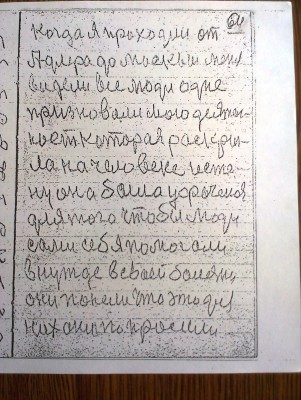 64
когда я проходил от
Адлра до москвы меня
видели все люди одне
призновали мою деятел-
ность которая раскры-
ла на человеке исте-
ну она была
для того чтобы люди
сами себя помогали
в нужде в своей болезни
они поняли что это для
них они попросили